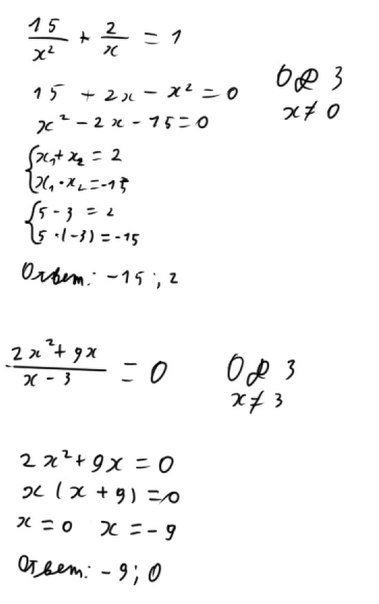 15/x² + 2/x = 1
15 + 2x - x² = 0
ОДЗ
x ≠ 0
x² - 2x - 15 = 0
{x₁ + x₂ = 2
{x₁ · x₂ = -15
{5 - 3 = 2
{5 · (-3) = -15
Ответ: -15; 2
(2x² + 9x)/(x - 3) = 0
ОДЗ
x ≠ 3
2x² + 9x = 0
x(x + 9) = 0
x = 0 x = -9
Ответ: -9; 0